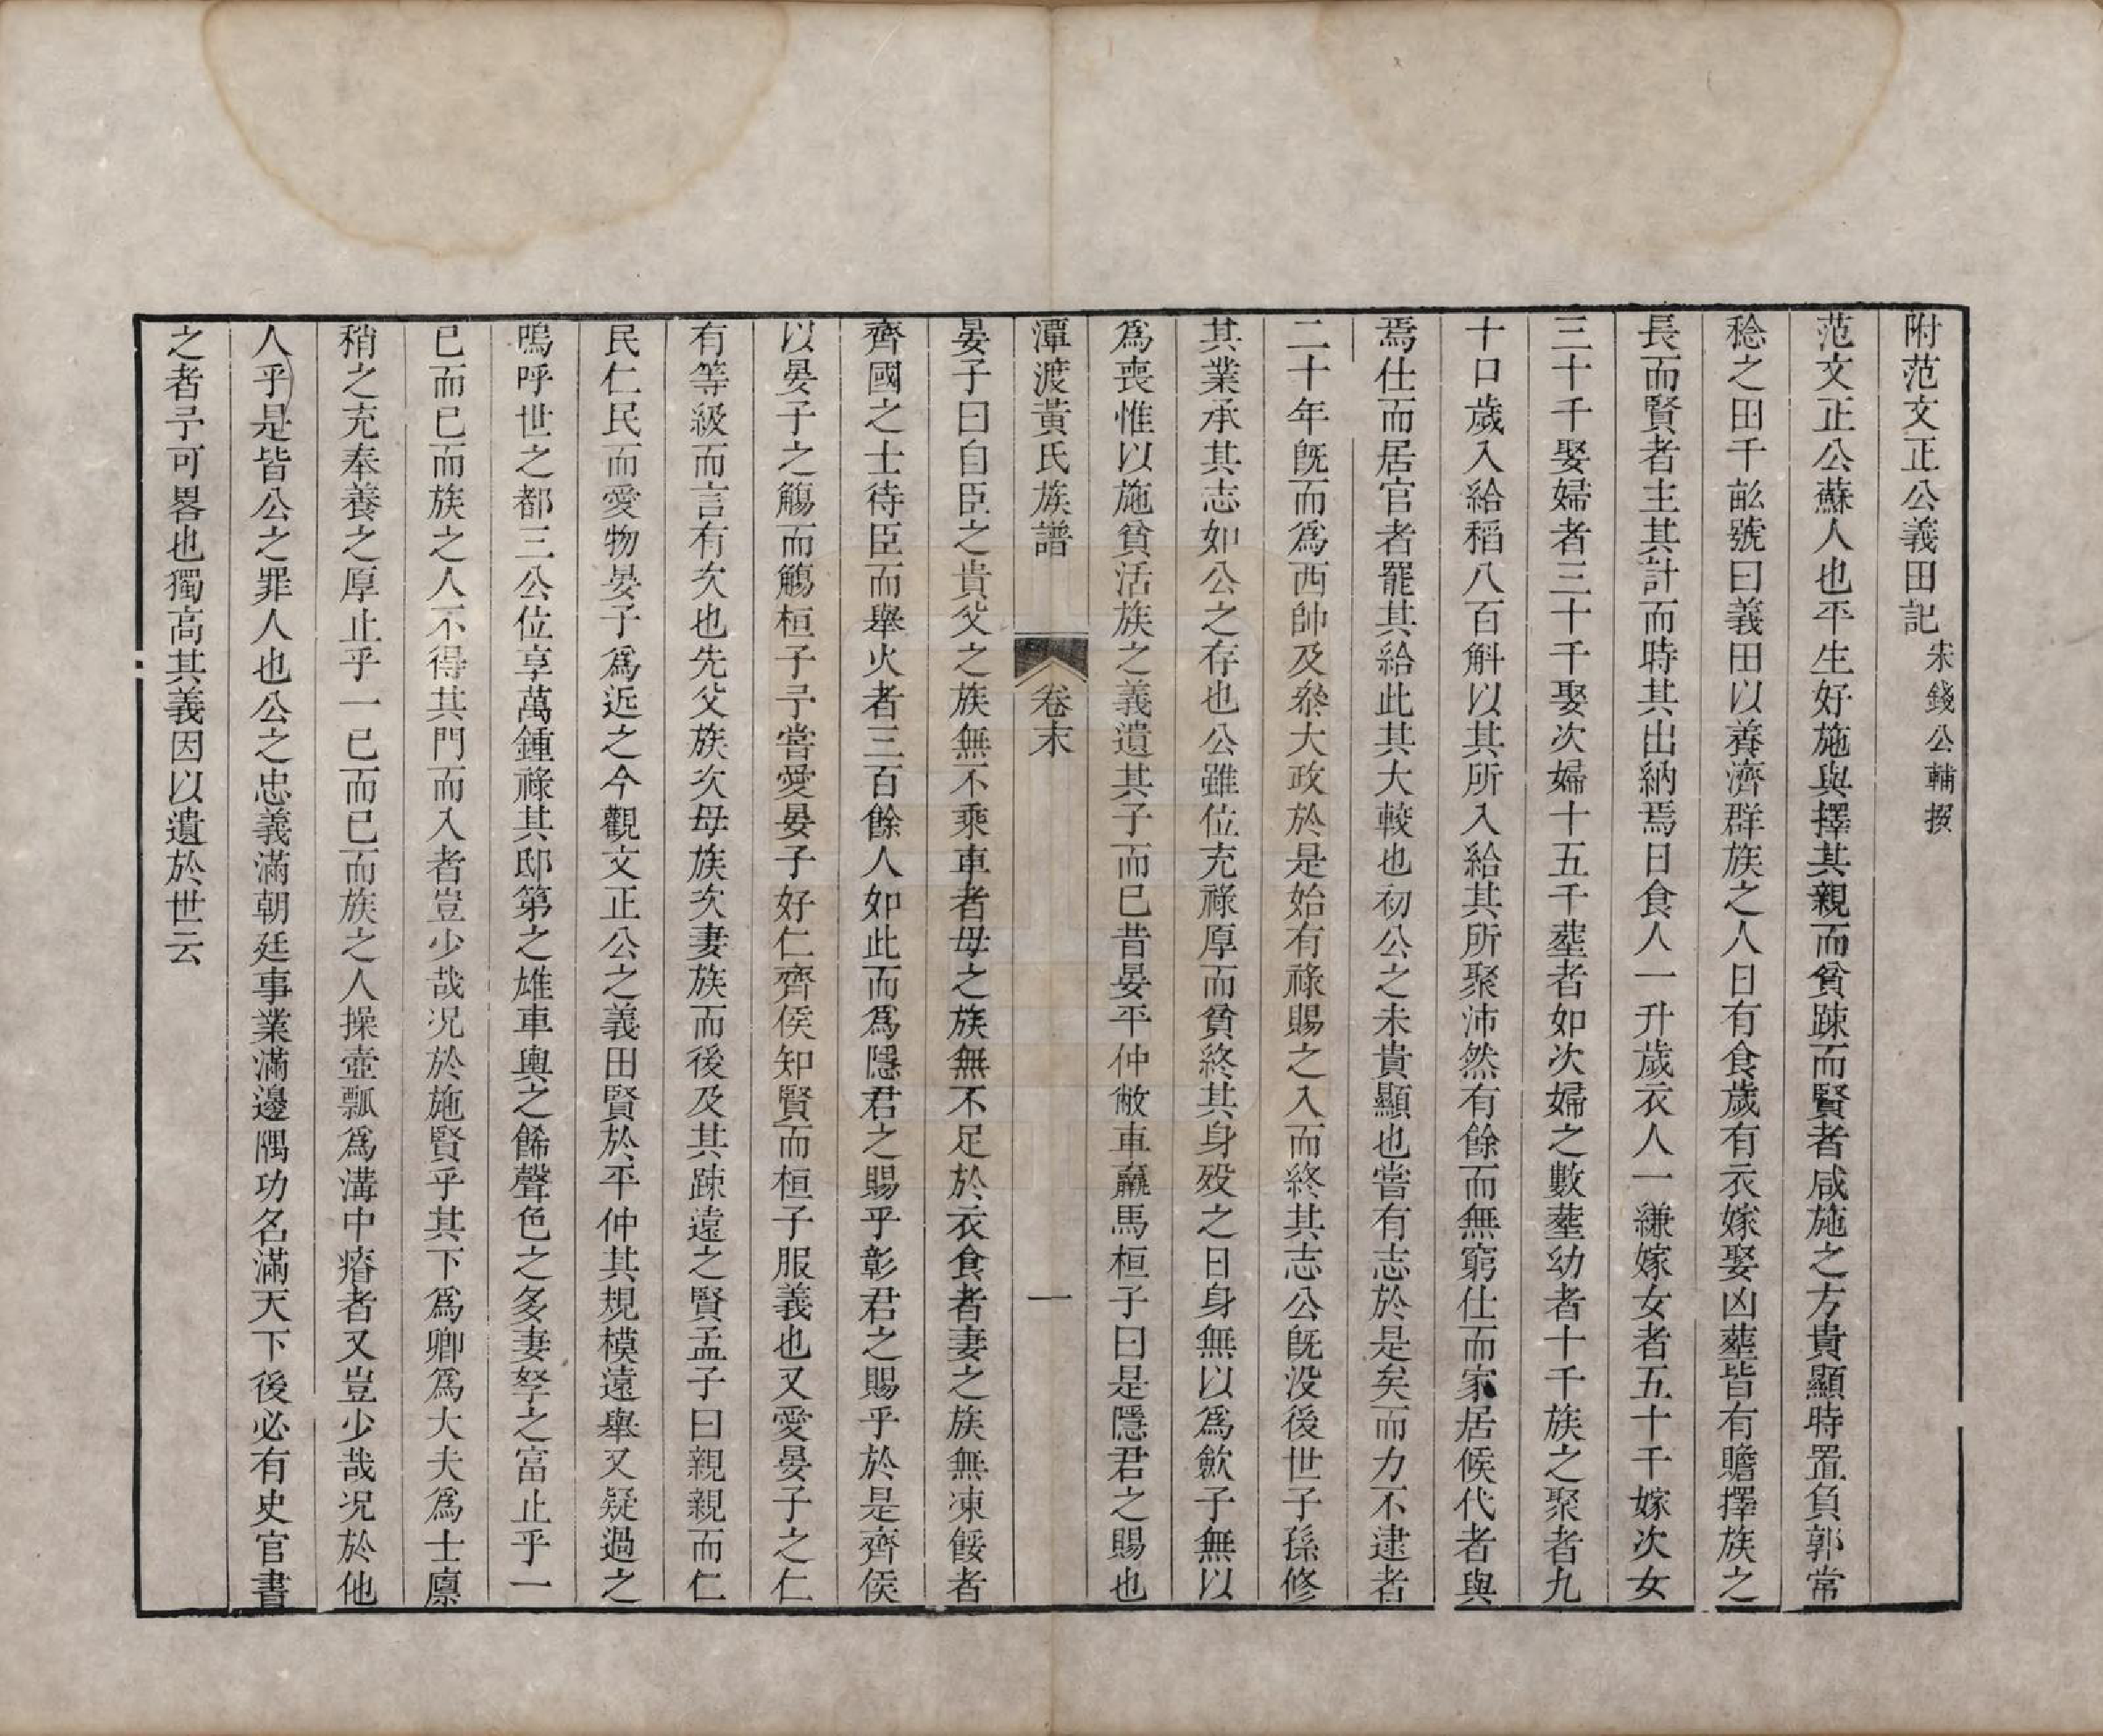 附范文正公義田記宋錢公輔撰
范文正公蘇人也平生好施與擇其親而貧踈而賢者咸施之方貴顯時置負郭常
稔之田千畝號曰義田以養濟群族之人日有食歲有衣嫁娶凶塟皆有贍擇族之
長而賢者主其計而時其出納焉日食人一升歲衣人一縑嫁女者五十千嫁次女
三十千娶婦者三十千娶次婦十五千塟者如次婦之數塟幼者十千族之聚者九
十口歲入給稻八百斛以其所入給其所聚沛然有餘而無窮仕而家居候代者與
焉仕而居官者罷其給此其大較也初公之未貴顯也嘗有志於是矣而力不逮者
二十年旣而爲西帥及叅大政於是始有祿賜之入而終其志公旣没後世子孫修
其業承其志如公之存也公雖位充祿厚而貧終其身殁之日身無以爲歛子無以
爲喪惟以施貧活族之義遺其子而已昔晏平仲敝車羸馬桓子曰是隱君之賜也
潭渡黃氏族譜 卷末 一
晏子曰自臣之貴父之族無不乘車者母之族無不足於衣食者妻之族無凍餒者
齊國之士待臣而舉火者三百餘人如此而爲隱君之賜乎彰君之賜乎於是齊侯
以晏子之觴而觴桓子予嘗愛晏子好仁齊侯知賢而桓子服義也又愛晏子之仁
有等級而言有次也先父族次母族次妻族而後及其踈遠之賢孟子曰親親而仁
民仁民而愛物晏子爲近之今觀文正公之義田賢於平仲其規模遠舉又疑過之
嗚呼世之都三公位享萬鍾祿其邸第之雄車輿之餙聲色之多妻孥之富止乎一
已而已而族之人不得其門而入者豈少哉况於施賢乎其下爲卿爲大夫爲士廪
稍之充奉養之厚止乎一已而已而族之人操壺瓢爲溝中瘠者又豈少哉况於他
人乎是皆公之罪人也公之忠義滿朝廷事業滿邊隅功名滿天下後必有史官書
之者予可畧也獨高其義因以遺於世云